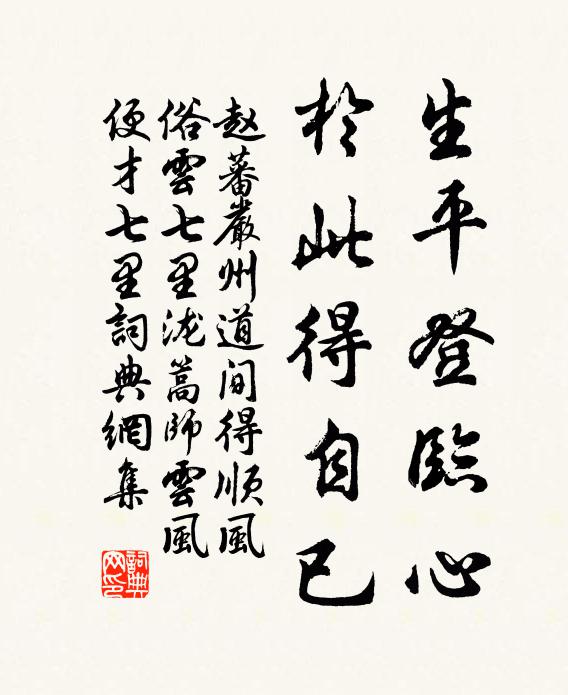 生平登臨心
於此得自已
赵蕃嚴州道间得顺風
俗雲七里泷篙師雲風
便才七里詞典網集
詞典网印